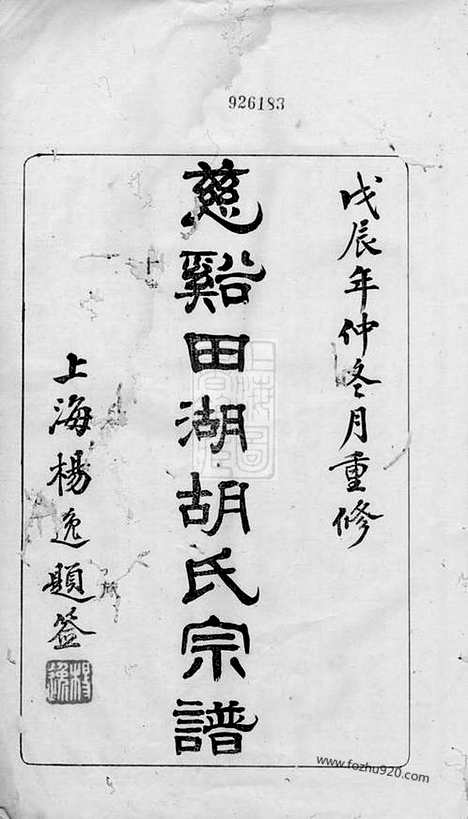 926183
戊辰年仲冬月重修
慈谿田湖胡氏宗譜
上海楊逸題簽
楊逸
www.fozhu920.com